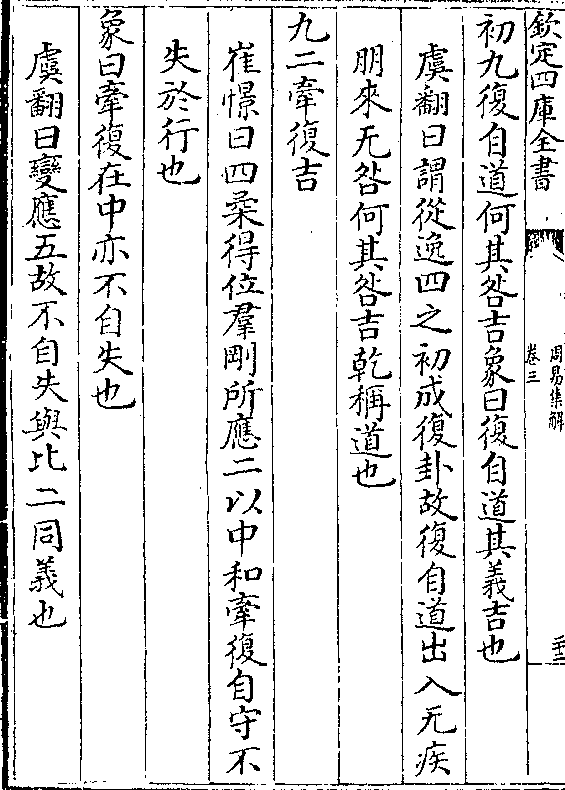 欽定四庫全書
周易集解
卷三
二十三
初九復自道何其咎吉象曰復自道其義吉也
虞翻曰謂從逸四之初成復卦故復自道出入无疾
朋來无咎何其咎吉乾稱道也
九二牽復吉
崔憬曰四柔得位羣剛所應二以中和牽復自守不
失於行也
象曰牽復在中亦不自失也
虞翻曰變應五故不自失與比二同義也